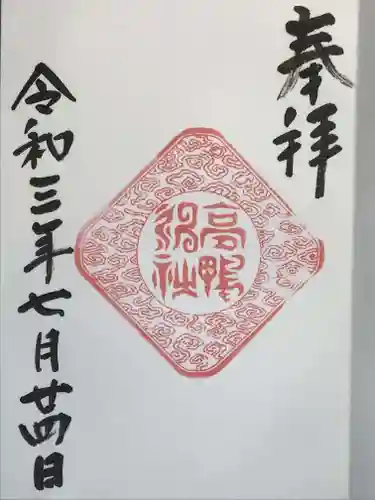 奉拝
高鴨
神社
令和三年七月廿四日